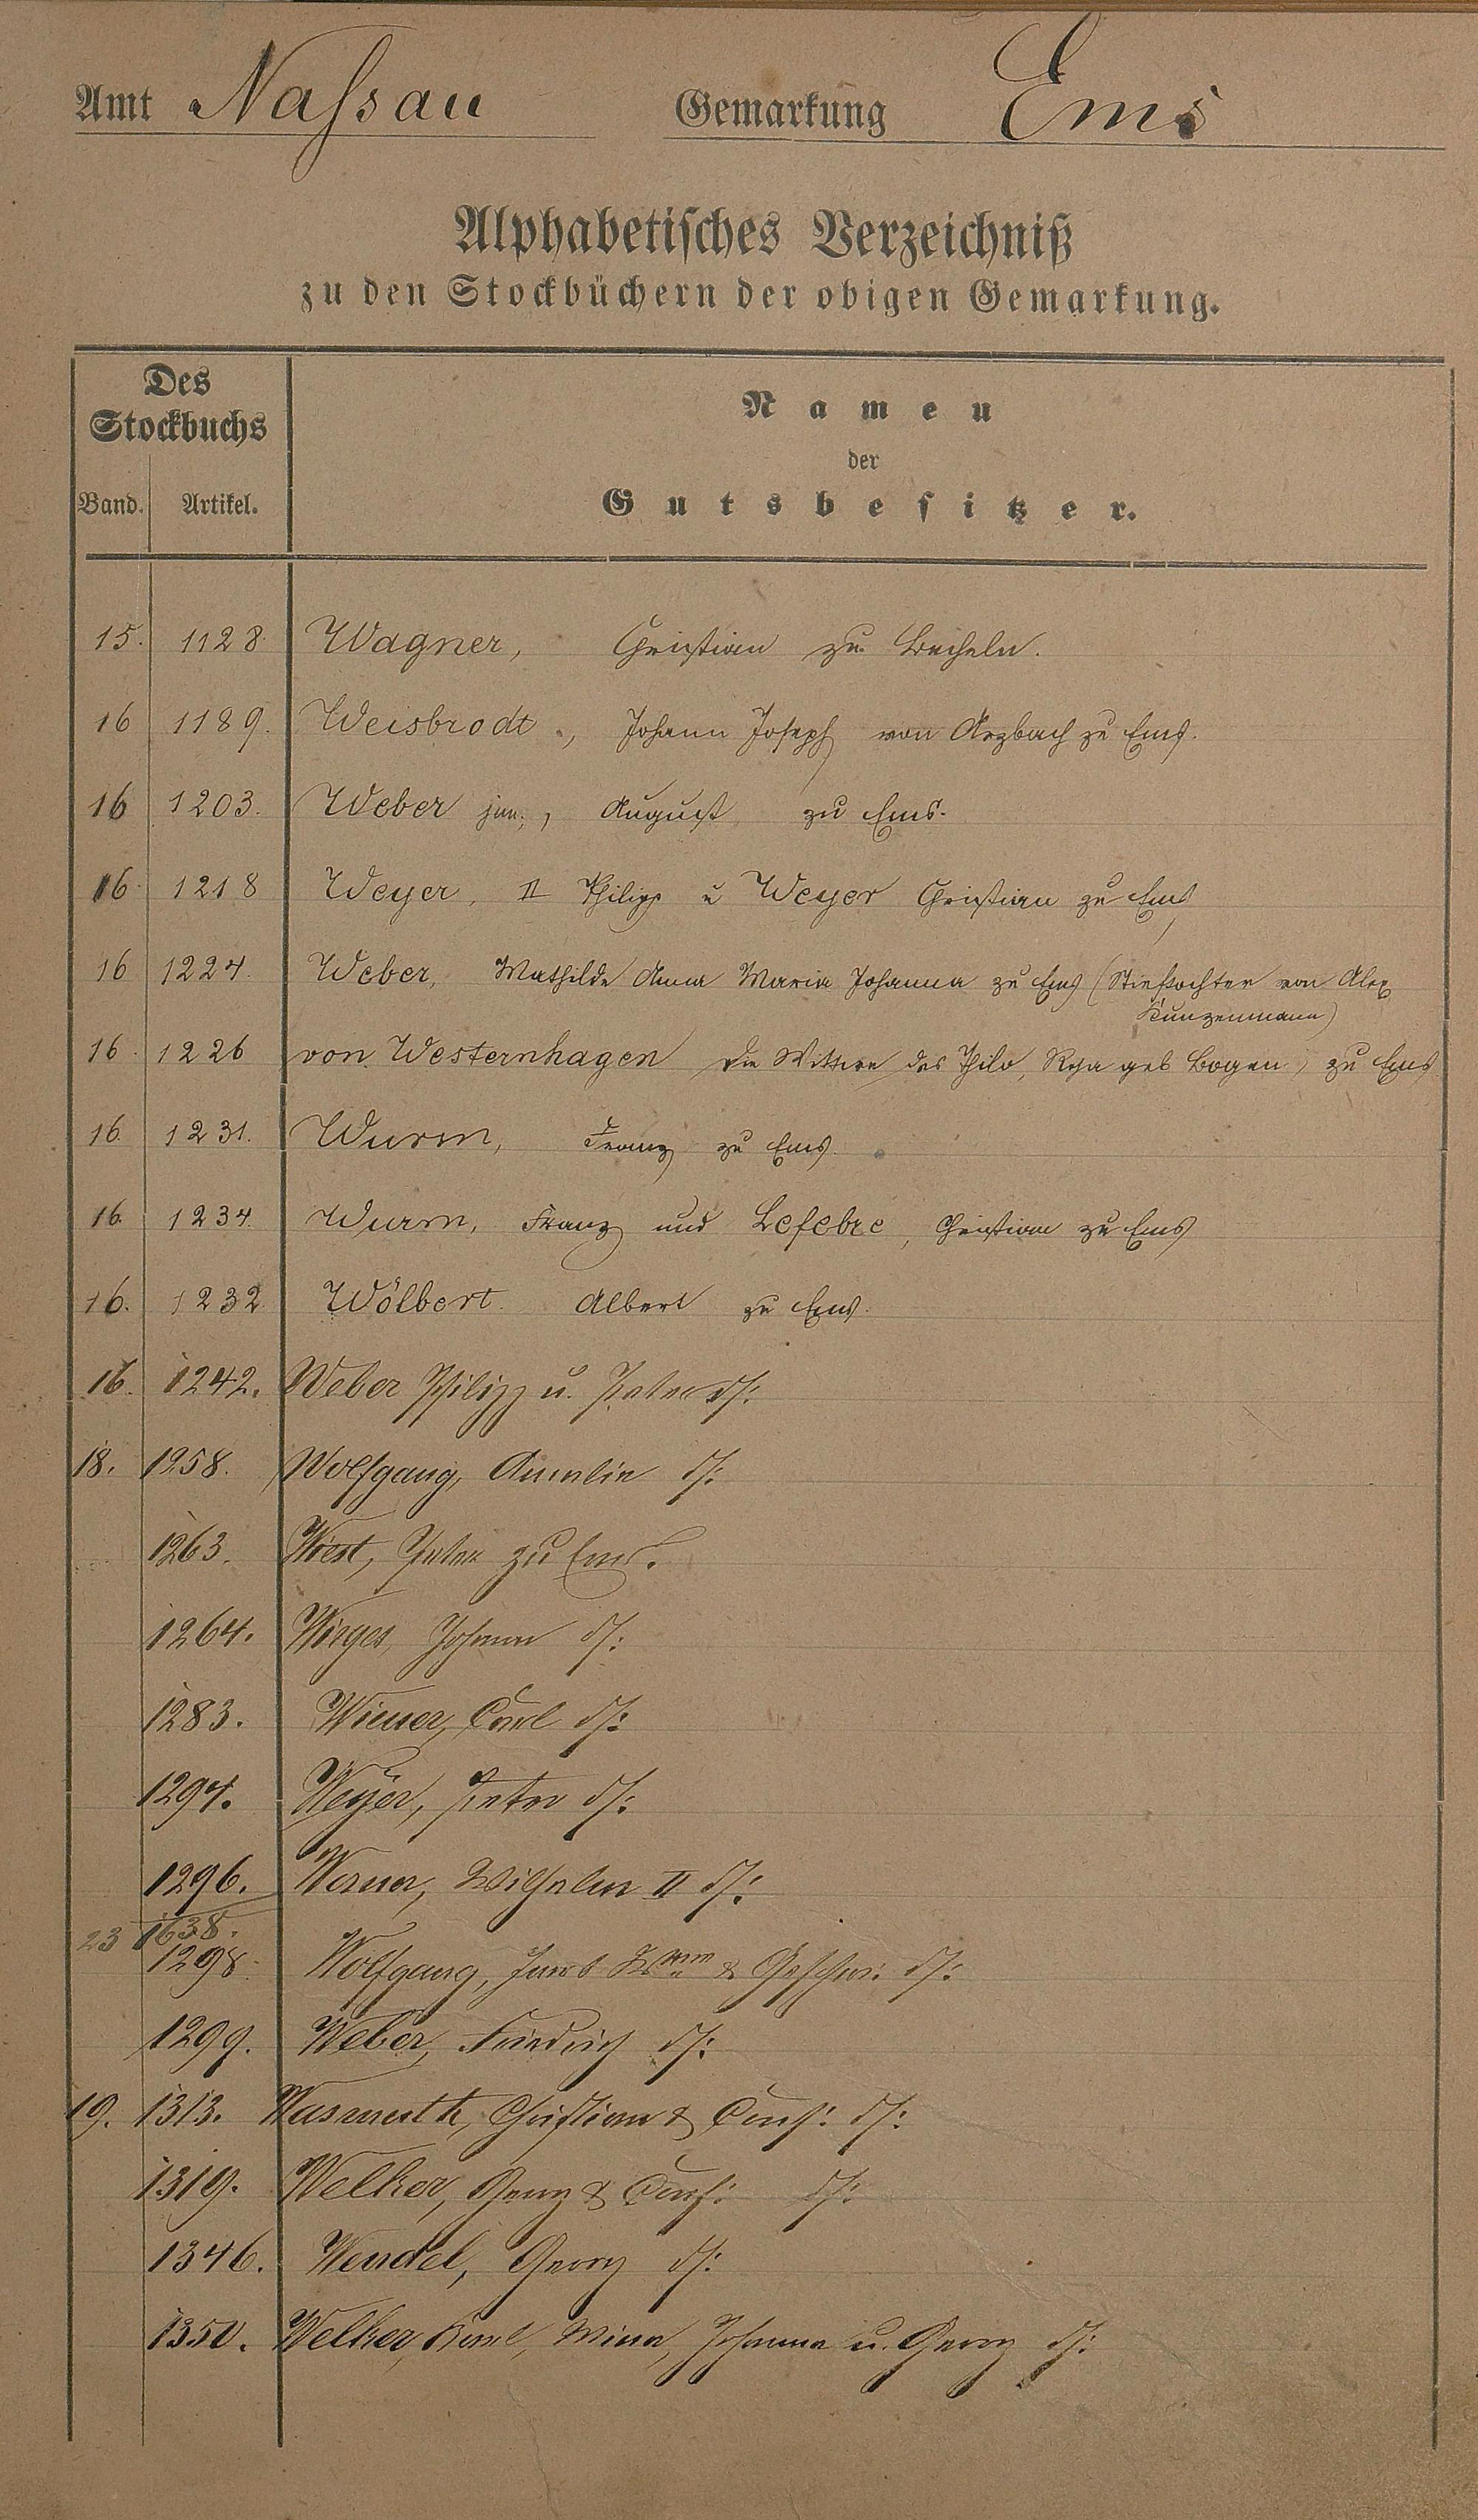 Amt Nassau Gemarkung Ems
Alphabetisches Verzeichniß
zu den Stockbüchern der obigen Gemarkung.
Des
Stockbuchs
Band. Artikel.
Namen
der
Gutsbesitzer.
15. 1128. Wagner, Christian zu Becheln.
16 1189. Weisbrodt, Johann Joseph von Arzbach zu Ems.
16 1203. Weber jun., August zu Ems.
16. 1218 Weyer, II Philipp u Weyer Christian zu Ems
16 1224. Weber, Mathilde Anna Maria Johanna zu Ems (Stieftochter von Alex
Kunzenmann)
16. 1226 von Westernhagen die Wittwe des Thilo, geb Bogen, zu Ems
16. 1231. Wurm, Franz zu Ems.
16. 1234. Wurm, Franz und Lefebre, Christian zu Ems
16. 1232. Wölbert. Albert zu Ems.
16. 1242. Weber Philipp u. Peter ds:
18. 1258. Wolfgang, Amalie ds:
1263. Wöst, Peter zu Ems.
1264. Wirges, Johann ds:
1283. Wiener, Carl ds:
1294. Weyer, Peter ds:
1296. Werner, Wilhelm II ds:
23 1638.
1298. Wolfgang, Jacob & Geschw: ds:
1299. Weber, Friedrich ds:
19. 1313. Wasmuth, Christian & Cons: ds:
1319. Welker, Georg & Cons: ds:
1346. Wendel, Georg ds:
1350. Welker, Karl, Mina, Johanna u. Georg ds: